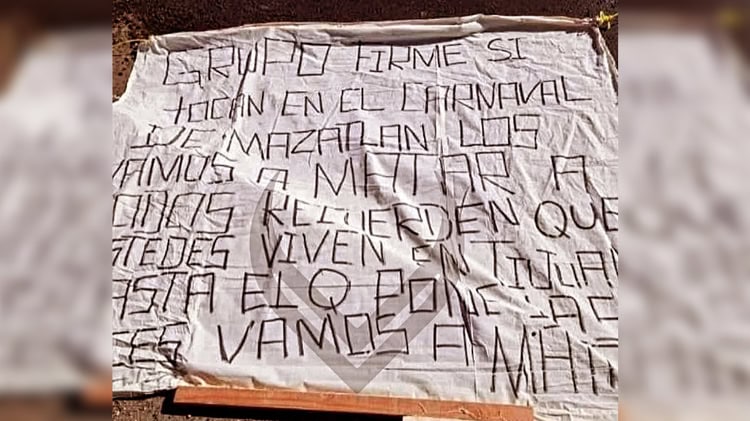 GRUPO FIRME SI
TOCAN EN EL CARNAVAL
DE MAZATLAN LOS
VAMOS A MATAR A
ODOS RECUERDEN QUE
STEDES VIVEN EN TIJUAN
ASTA EL Q PONE
CES VAMOS A MAT